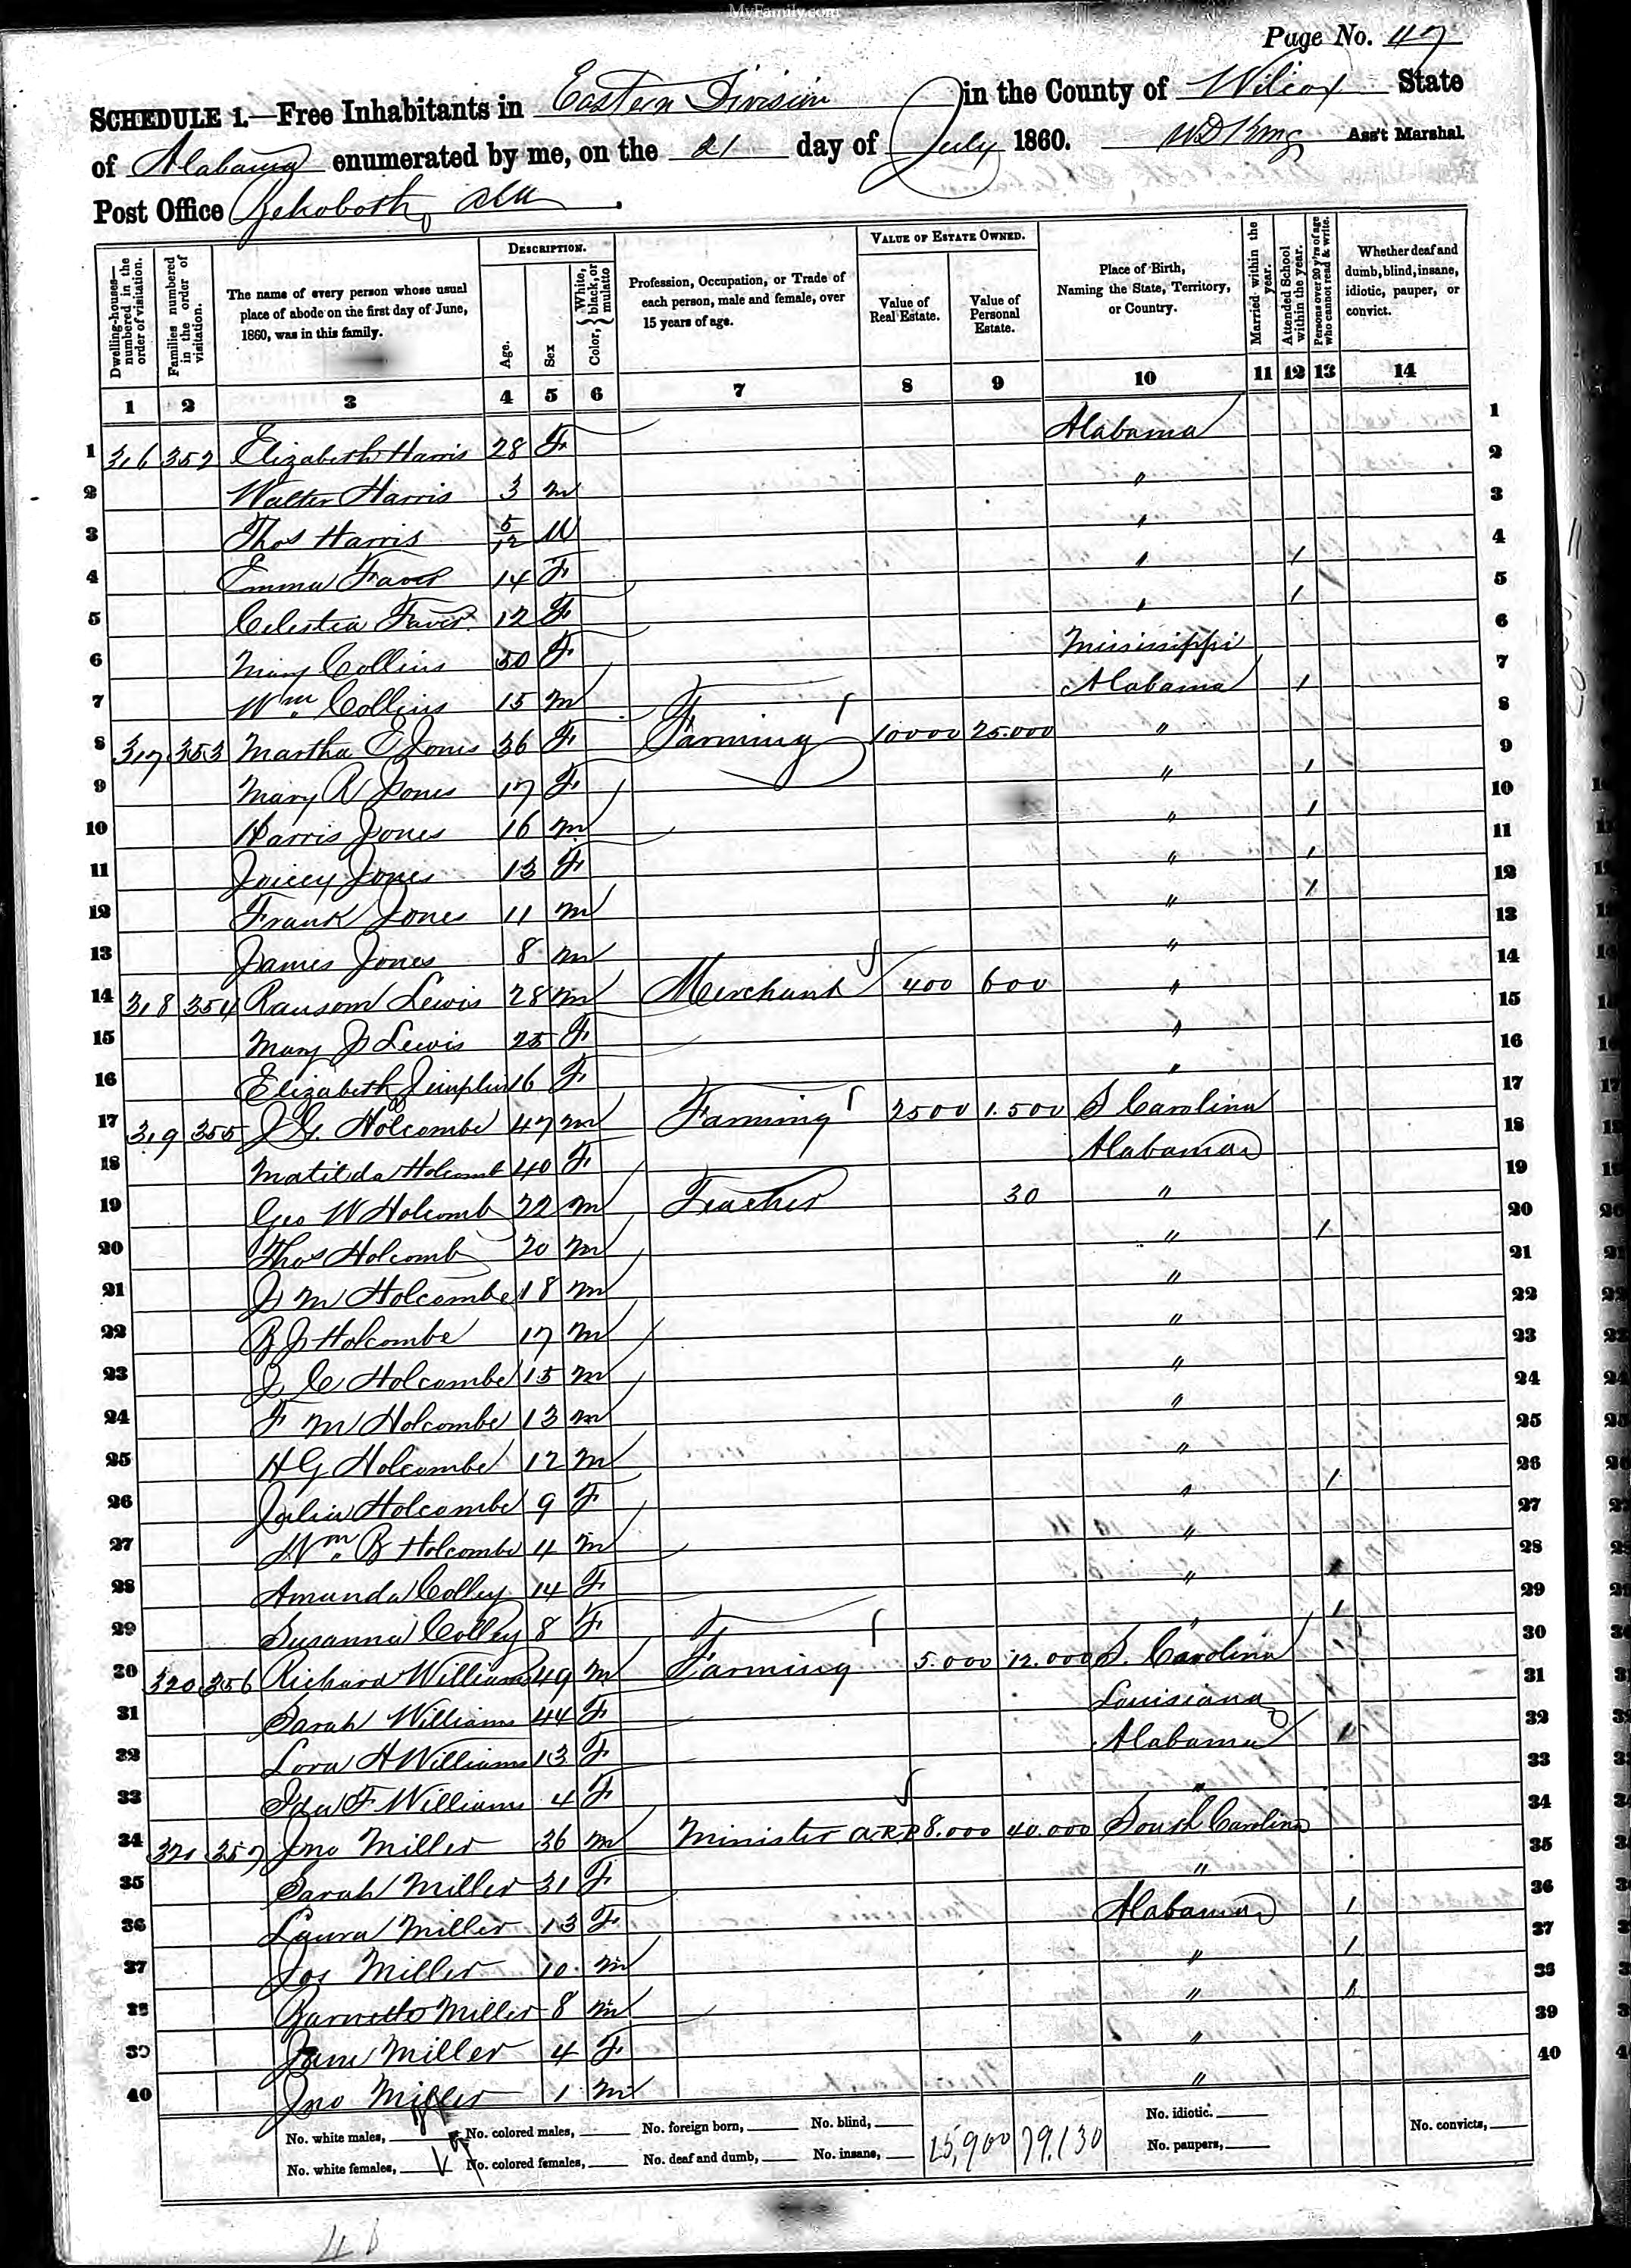 MyFamily.com
Page No. 47
SCHEDULE 1.—Free Inhabitants in Eastern Division in the County of Wilcox State
of Alabama enumerated by me, on the 21 day of July 1860. W D King Ass't Marshal.
Post Office Rehoboth, Ala.
Dwelling-houses—numbered in the order of visitation.
Families numbered in the order of visitation.
The name of every person whose usual place of abode on the first day of June, 1860, was in this family.
DESCRIPTION.
Age.
Sex
Color, { White, black, or mulatto
Profession, Occupation, or Trade of each person, male and female, over 15 years of age.
VALUE OF ESTATE OWNED.
Value of Real Estate.
Value of Personal Estate.
Place of Birth, Naming the State, Territory, or Country.
Married within the year.
Attended School within the year.
Persons over 20 y'rs of age who cannot read & write.
Whether deaf and dumb, blind, insane, idiotic, pauper, or convict.
1 2 3 4 5 6 7 8 9 10 11 12 13 14
1 316 352 Elizabeth Harris 28 F Alabama 1
2 Walter Harris 3 m " 2
3 Thos Harris 5/12 M " 3
4 Emma 14 F " / 4
5 Celestia 12 F " / 5
6 Mary Collins 50 F Mississippi 6
7 Wm. Collins 15 m Alabama / 7
8 317 353 Martha E Jones 36 F Farming 10000 25.000 " 8
9 Mary R Jones 17 F " / 9
10 Harris Jones 16 m " / 10
11 Joicey Jones 13 F " / 11
12 Frank Jones 11 m " / 12
13 James Jones 8 m " 13
14 318 354 Ransom Lewis 28 m Merchant 400 600 " 14
15 Mary J Lewis 25 F " 15
16 Elizabeth 16 F " 16
17 319 355 J G. Holcombe 47 m Farming 2500 1.500 S Carolina 17
18 Matilda Holcomb 40 F Alabama 18
19 Geo W Holcomb 22 m Teacher 30 " 19
20 Thos Holcomb 20 m " / 20
21 J M Holcombe 18 m " 21
22 B J Holcombe 17 m " 22
23 J C Holcombe 15 m " 23
24 F M Holcombe 13 m " 24
25 H G Holcombe 12 m " 25
26 Julia Holcombe 9 F " / 26
27 Wm. B Holcombe 4 m " 27
28 Amanda Colley 14 F " 28
29 Susanna Colley 8 F " / 29
30 320 356 Richard Williams 49 m Farming 5.000 12.000 S. Carolina 30
31 Sarah Williams 44 F Louisiana 31
32 Lora H Williams 13 F Alabama / 32
33 Ida F Williams 4 F " 33
34 321 357 Jno Miller 36 m Minister A.R.P 8.000 40.000 South Carolina 34
35 Sarah Miller 31 F " 35
36 Laura Miller 13 F Alabama / 36
37 Jos Miller 10 m " / 37
38 Miller 8 m " / 38
39 Jane Miller 4 F " 39
40 Jno Miller 1 m " 40
No. white males, No. colored males, No. foreign born, No. blind, No. idiotic. No. convicts,
No. white females, No. colored females, No. deaf and dumb, No. insane, 25,900 79,130 No. paupers,